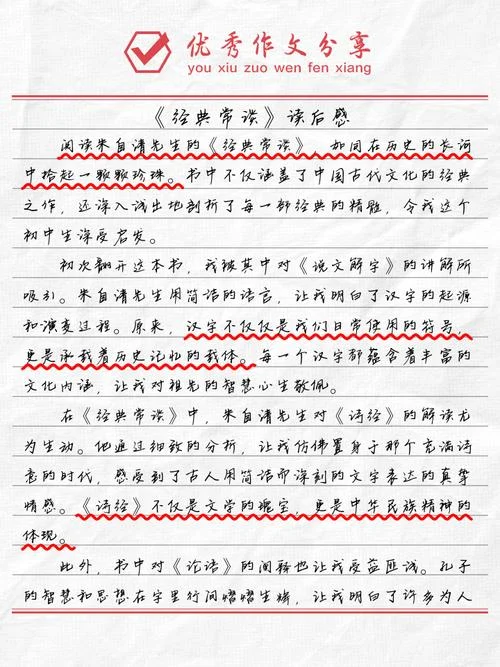 优秀作文分享
you xiu zuo wen fen xiang
《经典常谈》读后感
阅读朱自清先生的《经典常谈》，如同在历史的长河
中拾起一颗颗珍珠。书中不仅涵盖了中国古代文化的经典
之作，还深入浅出地剖析了每一部经典的精髓，令我这个
初中生深受启发。
初次翻开这本书，我被其中对《说文解字》的讲解所
吸引。朱自清先生用简洁的语言，让我明白了汉字的起源
和演变过程。原来，汉字不仅仅是我们日常使用的符号，
更是承载着历史记忆的载体。每一个汉字都蕴含着丰富的
文化内涵，让我对祖先的智慧心生敬佩。
在《经典常谈》中，朱自清先生对《诗经》的解读尤
为生动。他通过细致的分析，让我仿佛置身于那个充满诗
意的时代，感受到了古人用简洁而深刻的文字表达的真挚
情感。《诗经》不仅是文学的瑰宝，更是中华民族精神的
体现。
此外，书中对《论语》的阐释也让我受益匪浅。孔子
的智慧和思想在字里行间熠熠生辉，让我明白了许多为人